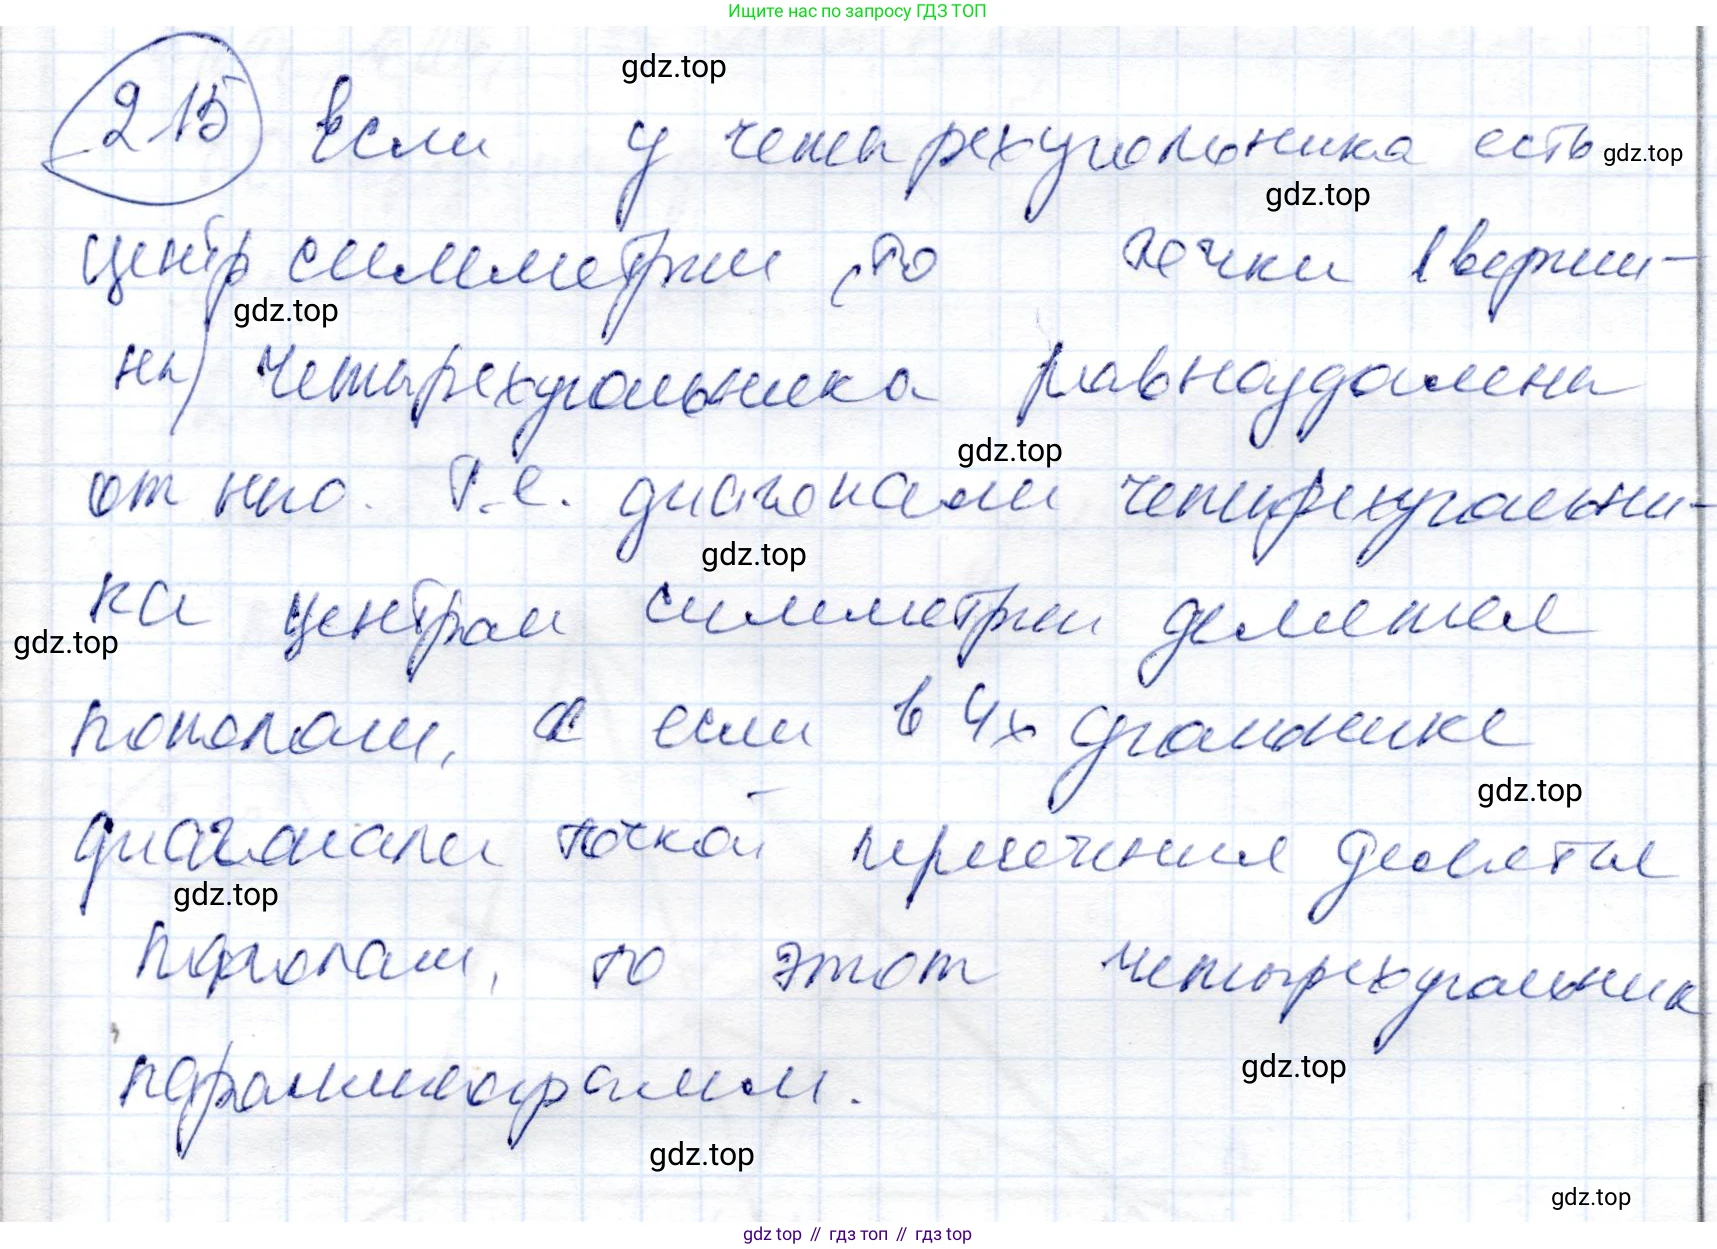 Ищите нас по запросу ГДЗ ТОП
gdz.top
215 Если у четырехугольника есть
gdz.top
gdz.top
центр симметрии, то точки (верши-
gdz.top
ны) четырехугольника равноудалены
gdz.top
от него. Т.е. диагонали четырехугольни-
gdz.top
ка центром симметрии делятся
gdz.top
пополам, а если в 4х угольнике
gdz.top
диагонали точкой пересечения делятся
gdz.top
пополам, то этот четырехугольник
gdz.top
параллелограмм.
gdz.top
gdz.top
gdz top // гдз топ // гдз top